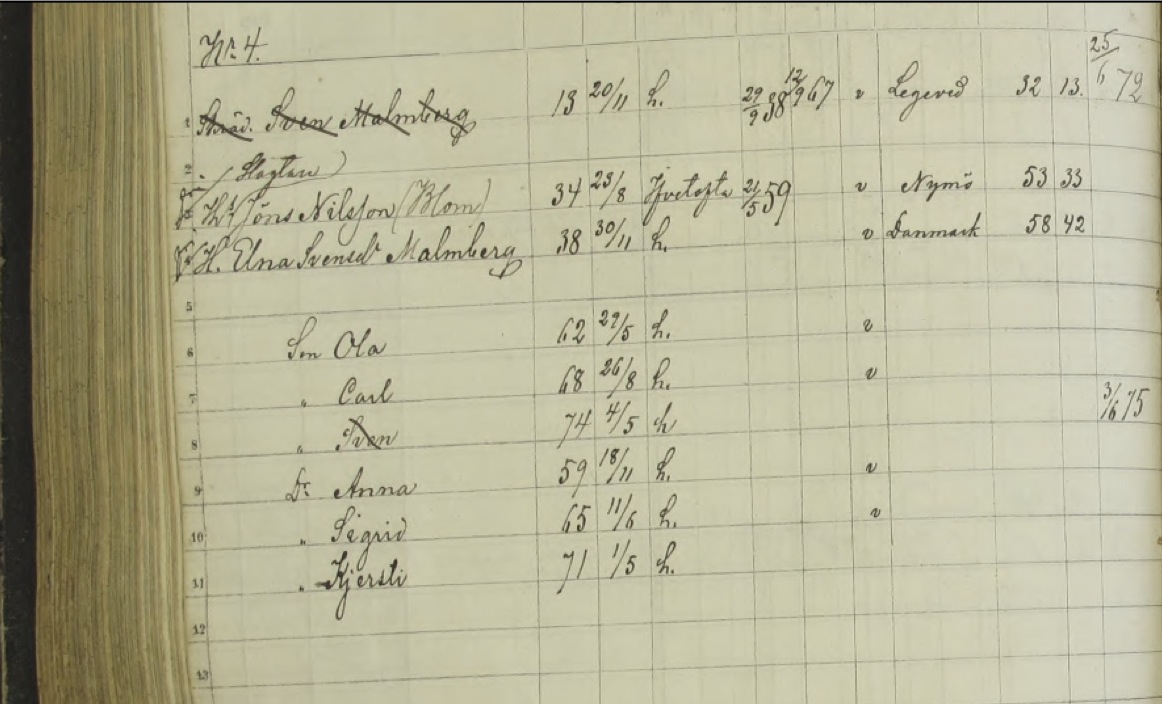 Nr 4.
25/6 72
1 Skräd. Sven Malmberg 13 20/11 h. 29/9 38 12/9 67 v Legeved 32 13.
2 (Slagtare)
Jöns Nilsson (Blom) 34 23/8 Hvetofta 21/5 59 v Nymö 53 33
H. Elna Svensdr Malmberg 38 30/11 h. v Danmark 58 42
5
6 Son Ola 62 29/5 h. v
7 " Carl 68 26/8 h. v
8 " Sven 74 4/5 h 3/6 75
9 Dr Anna 59 18/11 h. v
10 " Sigrid 65 11/6 h. v
11 " Kjersti 71 1/5 h.
12
13